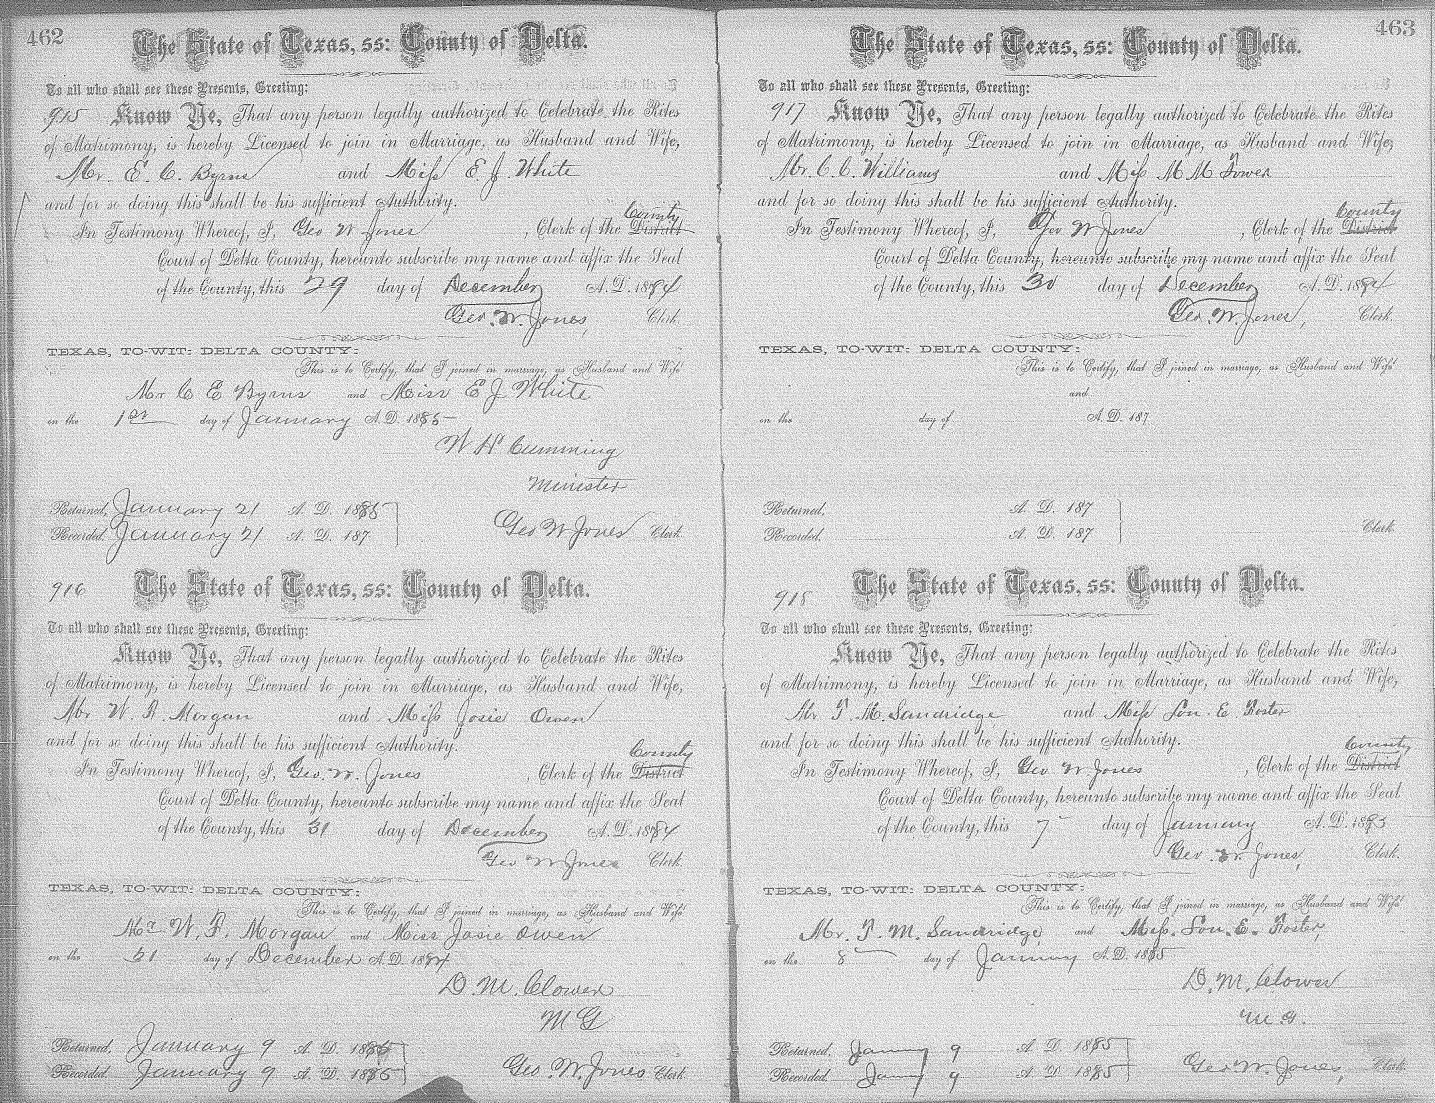 462
The State of Texas, ss: County of Delta.
To all who shall see these Presents, Greeting:
915 Know Ye, That any person legally authorized to Celebrate the Rites
of Matrimony, is hereby Licensed to join in Marriage, as Husband and Wife,
Mr. E. C. Byrns and Miss E J White
and for so doing this shall be his sufficient Authority.
County
In Testimony Whereof, I, Geo W Jones, Clerk of the District
Court of Delta County, hereunto subscribe my name and affix the Seal
of the County, this 29 day of December A.D. 1884
Geo. W. Jones, Clerk.
TEXAS, TO-WIT: DELTA COUNTY:
This is to Certify, that I joined in marriage, as Husband and Wife
Mr C E Byrns and Miss E J White
on the 1st day of January A.D. 1885
W H Cumming
Minister
Returned, January 21 A. D. 1885
Recorded, January 21 A. D. 187
Geo W Jones Clerk.
916 The State of Texas, ss: County of Delta.
To all who shall see these Presents, Greeting:
Know Ye, That any person legally authorized to Celebrate the Rites
of Matrimony, is hereby Licensed to join in Marriage, as Husband and Wife,
Mr W. F. Morgan and Miss Josie Owen
and for so doing this shall be his sufficient Authority.
County
In Testimony Whereof, I, Geo. W. Jones, Clerk of the District
Court of Delta County, hereunto subscribe my name and affix the Seal
of the County, this 31 day of December A.D. 1884
Geo W Jones Clerk.
TEXAS, TO-WIT: DELTA COUNTY:
This is to Certify, that I joined in marriage, as Husband and Wife
Mr W. F. Morgan and Miss Josie Owen
on the 31 day of December A.D. 1884
D. M. Clower
M G
Returned, January 9 A. D. 1885
Recorded, January 9 A. D. 1885
Geo. W. Jones Clerk.
463
The State of Texas, ss: County of Delta.
To all who shall see these Presents, Greeting:
917 Know Ye, That any person legally authorized to Celebrate the Rites
of Matrimony, is hereby Licensed to join in Marriage, as Husband and Wife,
Mr. C. C. Williams and Miss M M Tower
and for so doing this shall be his sufficient Authority.
County
In Testimony Whereof, I, Geo W Jones, Clerk of the District
Court of Delta County, hereunto subscribe my name and affix the Seal
of the County, this 30 day of December A.D. 1884
Geo. W. Jones, Clerk.
TEXAS, TO-WIT: DELTA COUNTY:
This is to Certify, that I joined in marriage, as Husband and Wife
and
on the day of A.D. 187
Returned, A. D. 187
Recorded, A. D. 187
Clerk.
918 The State of Texas, ss: County of Delta.
To all who shall see these Presents, Greeting:
Know Ye, That any person legally authorized to Celebrate the Rites
of Matrimony, is hereby Licensed to join in Marriage, as Husband and Wife,
Mr T. M. Sandridge and Miss Lou. E Foster
and for so doing this shall be his sufficient Authority.
County
In Testimony Whereof, I, Geo W Jones, Clerk of the District
Court of Delta County, hereunto subscribe my name and affix the Seal
of the County, this 7 day of January A.D. 1885
Geo. W. Jones, Clerk.
TEXAS, TO-WIT: DELTA COUNTY:
This is to Certify, that I joined in marriage, as Husband and Wife
Mr. T. M. Sandridge and Miss. Lou. E. Foster,
on the 8 day of January A.D. 1885
D. M. Clower
M. G.
Returned, Jany 9 A. D. 1885
Recorded, Jany 9 A. D. 1885
Geo. W. Jones, Clerk.